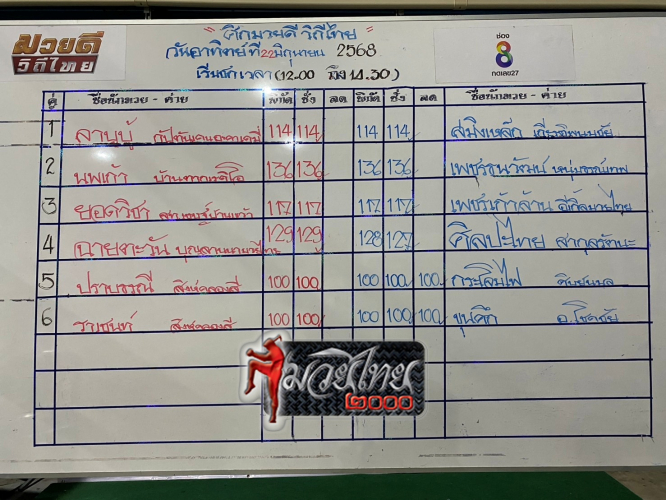 มวยดี
วิถีไทย
" ศึกมวยดีวิถีไทย "
วันอาทิตย์ที่ 22 มิถุนายน 2568
เริ่มชกเวลา (12.00 ถึง 14.30)
ช่อง
8
กดเลข27
คู่ ชื่อนักมวย - ค่าย พิกัด ชั่ง ลด พิกัด ชั่ง ลด ชื่อนักมวย - ค่าย
1 ลาบูบู้ 114 114 114 114 สมิงเหล็ก
2 นพเก้า 136 136 136 136 เพชรชนวัฒน์
3 ยอดวิชา 117 117 117 117 เพชรเก้าล้าน
4 ฉายตะวัน 129 129 128 127 ศิลปะไทย สากุลรัตนะ
5 ปราบธรณี สิงห์คลองสี่ 100 100 100 100 100 กระสือไฟ
6 ราเชนทร์ สิงห์คลองสี่ 100 100 100 100 100 ขุนศึก อ.โชคชัย
มวยไทย
๒๐๐๐